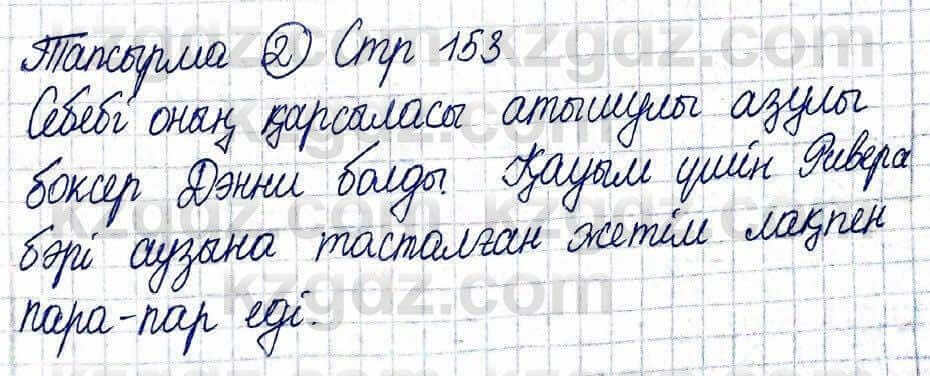 Тапсырма 2 Стр 153
Себебі оның қарсыласы атышулы азулы
боксер Дэнни болды. Қауым үшін Ривера
бәрі аузына тасталған жетім лақпен
пара-пар еді.
kzgdz.com